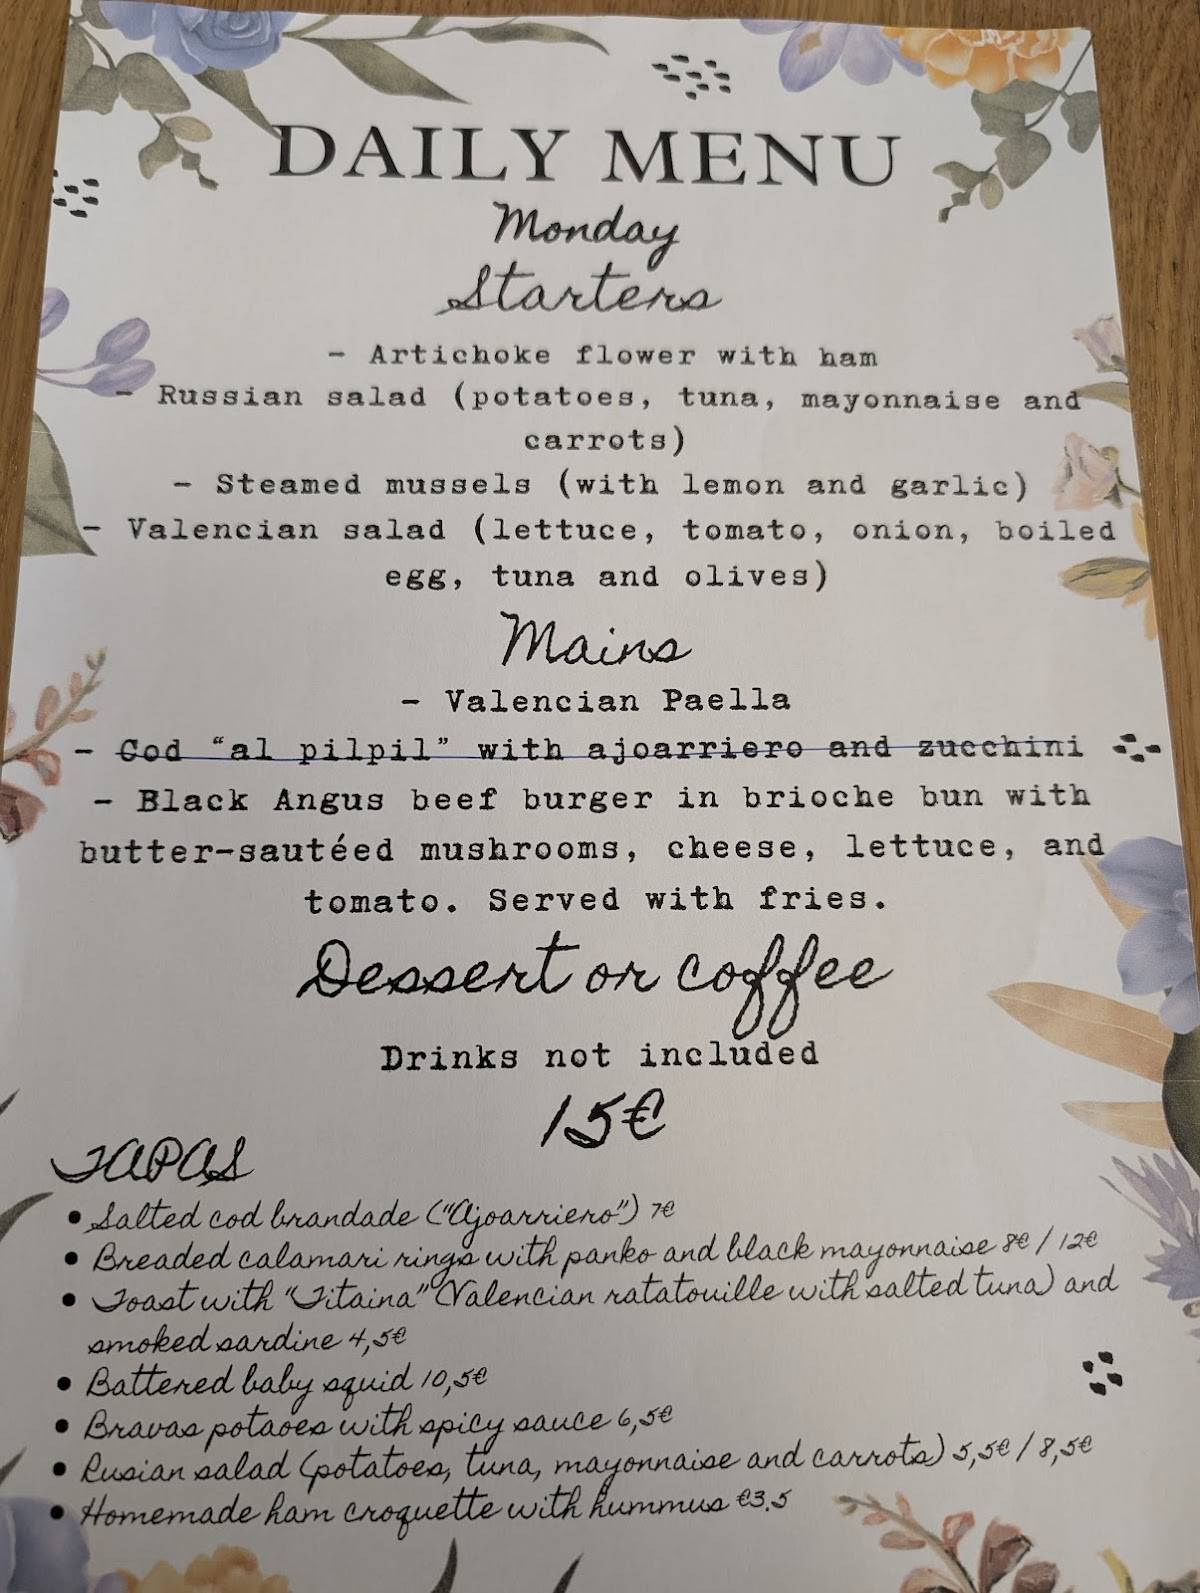 DAILY MENU
Monday
Starters
- Artichoke flower with ham
- Russian salad (potatoes, tuna, mayonnaise and
carrots)
- Steamed mussels (with lemon and garlic)
- Valencian salad (lettuce, tomato, onion, boiled
egg, tuna and olives)
Mains
- Valencian Paella
- Cod “al pilpil” with ajoarriero and zucchini
- Black Angus beef burger in brioche bun with
butter-sautéed mushrooms, cheese, lettuce, and
tomato. Served with fries.
Dessert or coffee
Drinks not included
15€
TAPAS
• Salted cod brandade ("Ajoarriero") 7€
• Breaded calamari rings with panko and black mayonnaise 8€ / 12€
• Toast with "Titaina" (Valencian ratatouille with salted tuna) and
smoked sardine 4,5€
• Battered baby squid 10,5€
• Bravas potaoes with spicy sauce 6,5€
• Rusian salad (potatoes, tuna, mayonnaise and carrots) 5,5€ / 8,5€
• Homemade ham croquette with hummus €3.5